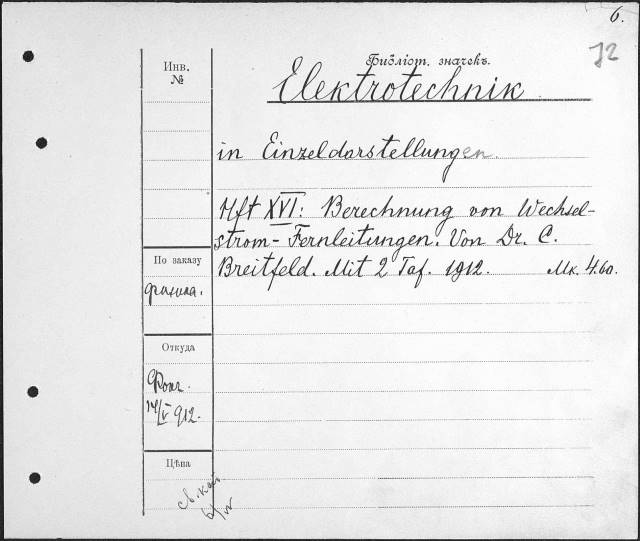 6.
72
Инв.
№
Библіот. значекъ.
Elektrotechnik
in Einzeldarstellungen.
Hft XVI: Berechnung von Wechsel-
strom-Fernleitungen. Von Dr. C.
Breitfeld. Mit 2 Taf. 1912. Mk. 4.60.
По заказу
физика.
Откуда
14/V 912.
Цѣна
св. кат